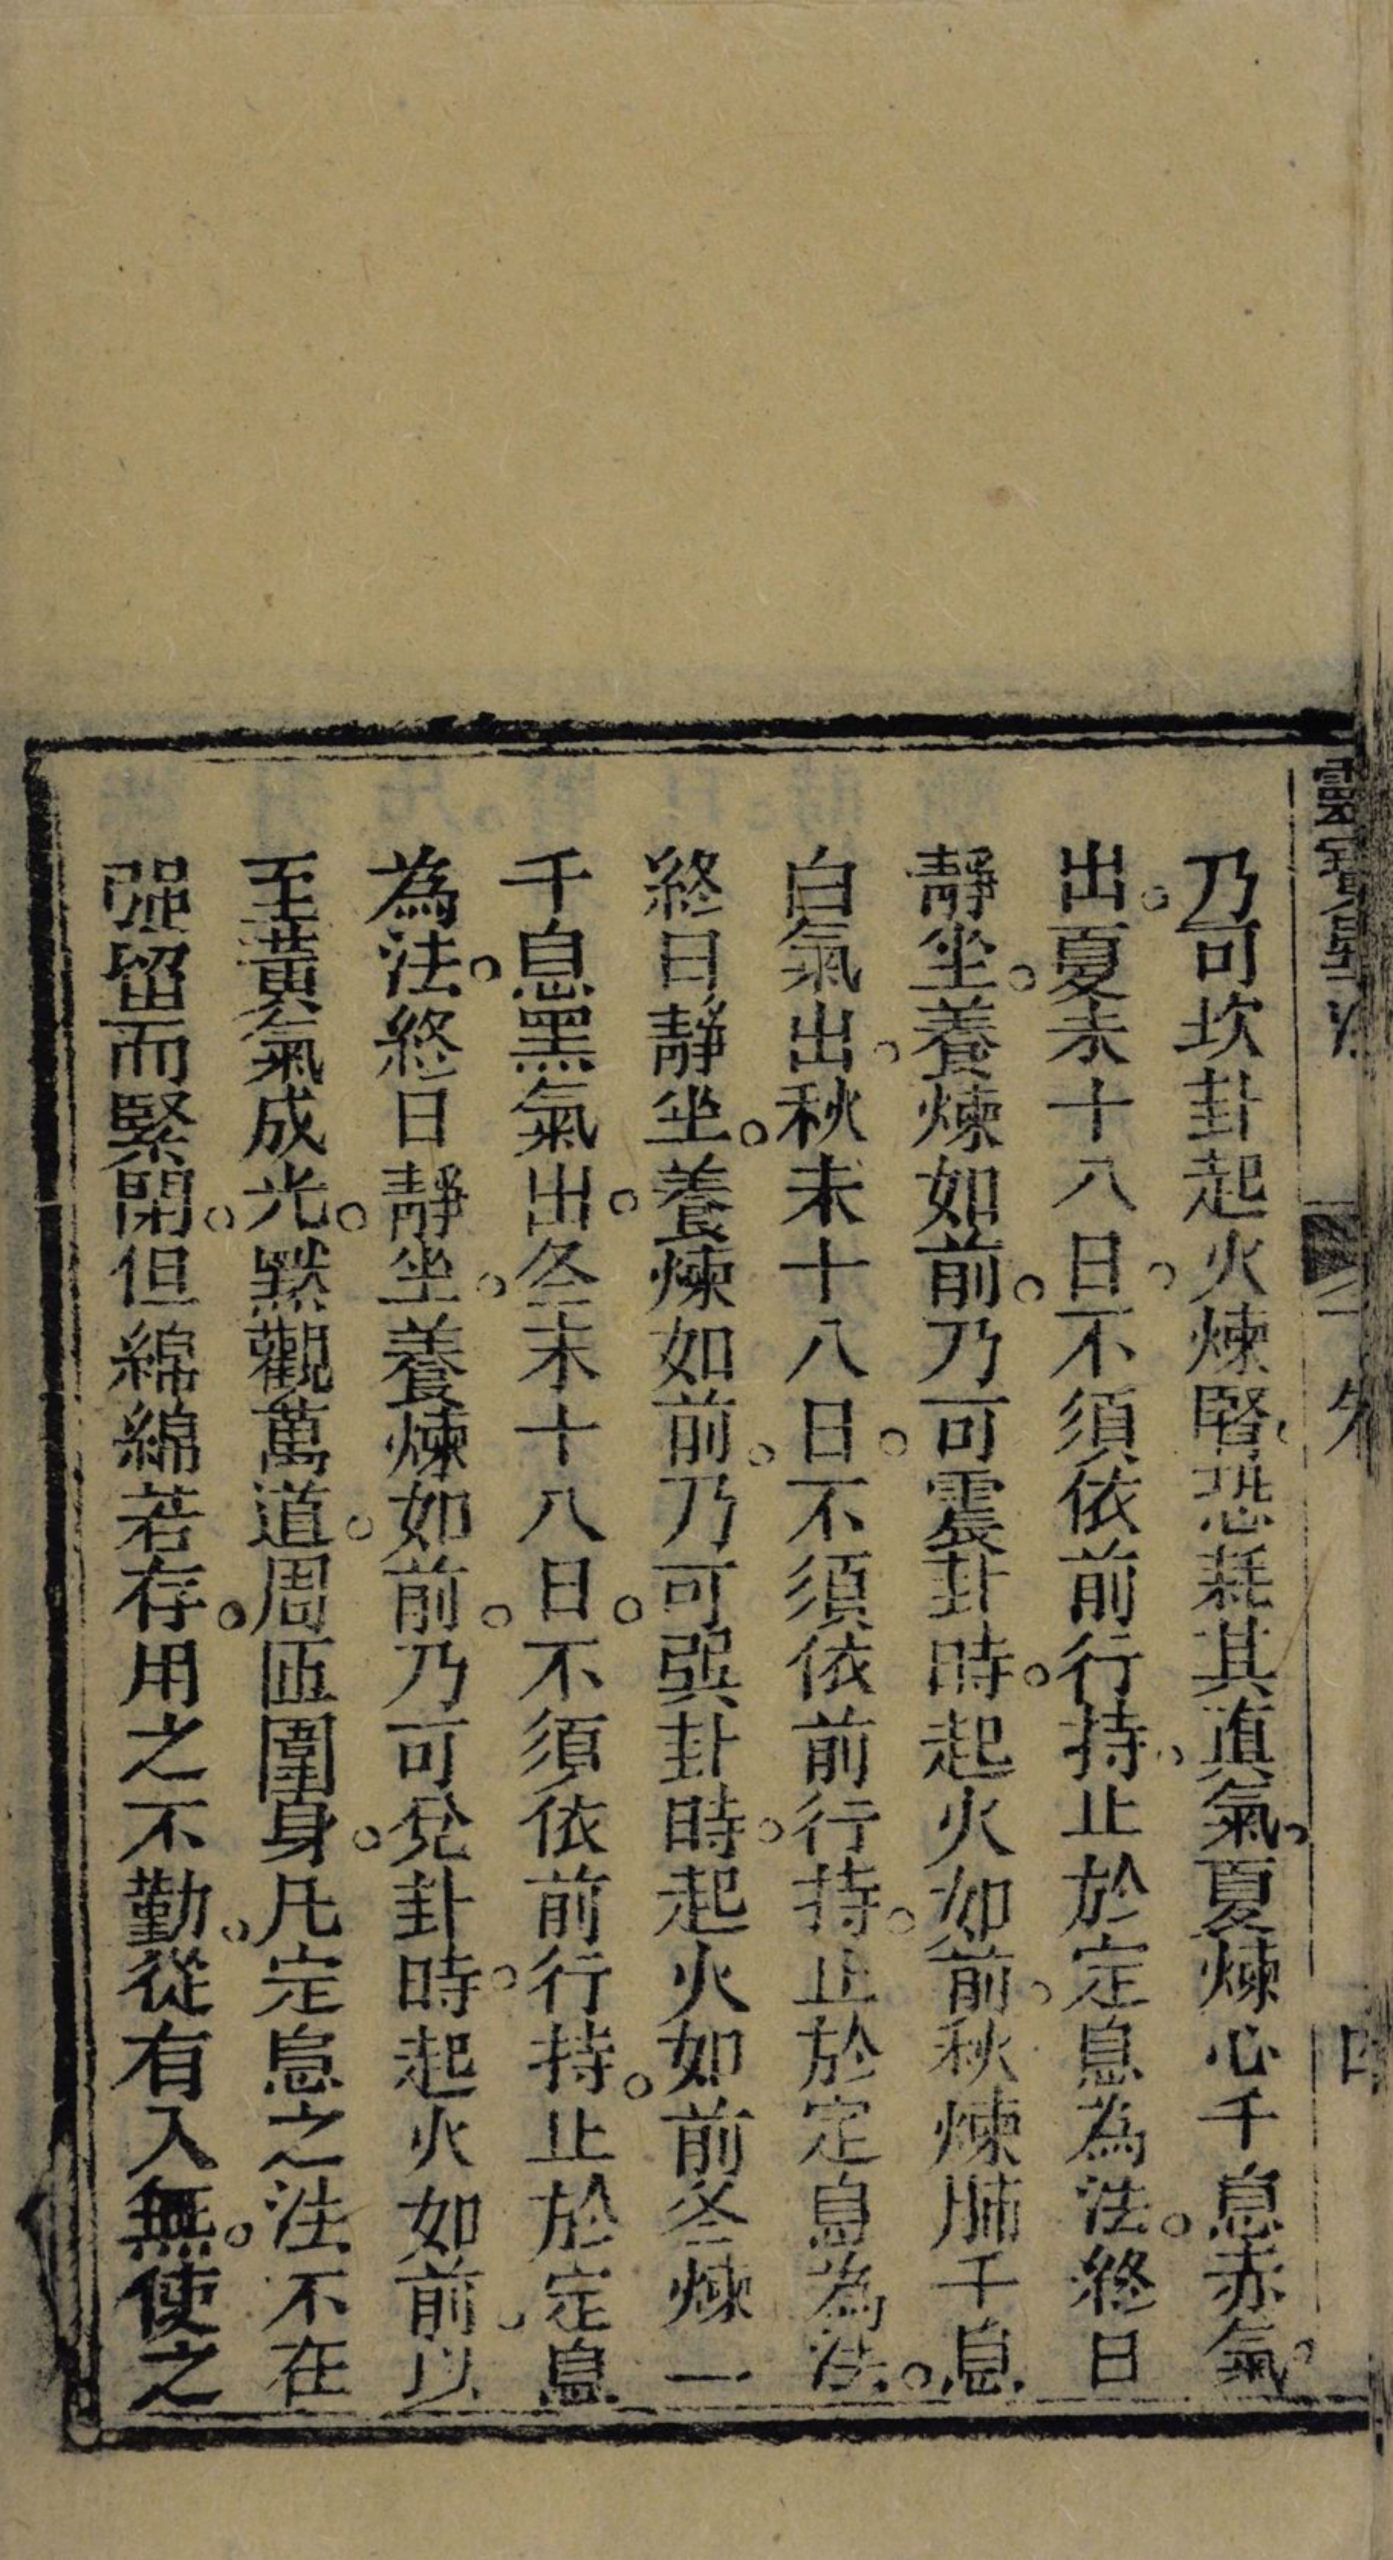 乃可坎卦起火煉腎恐耗其真氣。夏煉心千息赤氣
出。夏末十八日。不須依前行持。止於定息為法。終日
靜坐。養煉如前。乃可震卦時。起火如前。秋煉肺千息
白氣出。秋末十八日。不須依前行持。止於定息為法。
終日靜坐。養煉如前。乃可巽卦時。起火如前冬煉一
千息黑氣出。冬末十八日。不須依前行持。止於定息
為法。終日靜坐。養煉如前。乃可兌卦時。起火如前。以
至黃氣成光。默觀萬道。周匝圍身。凡定息之法不在
强留而緊閉。但綿綿若存。用之不勤。從有入無。使之